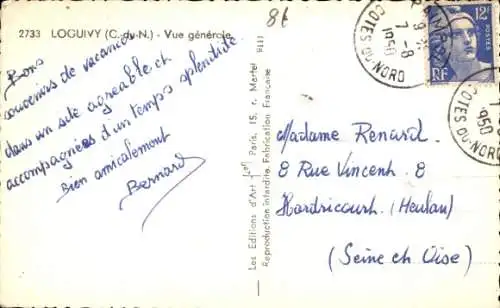 2733 LOGUIVY (C.-du-N.) - Vue générale
86
Bons
souvenirs de vacances
dans un site agreable et
accompagnées d'un temps splendide
Bien amicalement
Bernard
Les Editions d'Art Paris, 15, r. Martel
Reproduction interdite. Fabrication Française
PAIMPOL
7-8
1950
COTES-DU-NORD
12F
POSTES
RF
1950
COTES-DU-NORD
Madame Renard.
8 Rue Vincent. 8
Hardricourt. (Meulan)
(Seine et Oise)